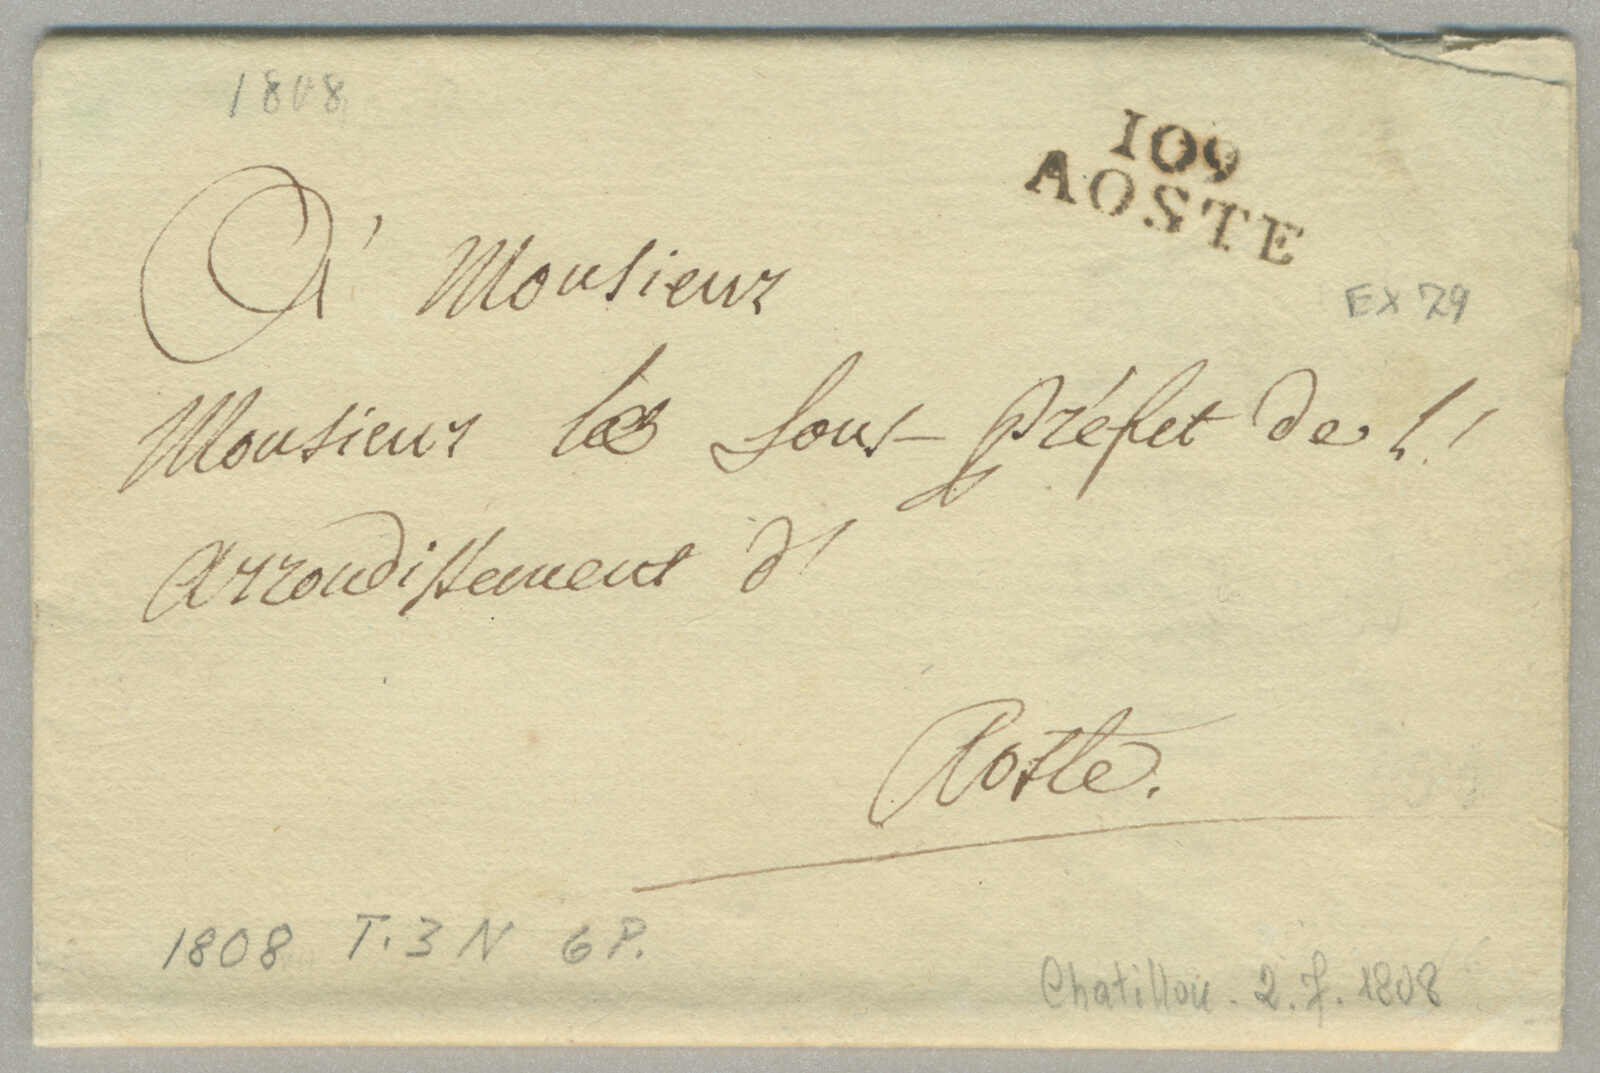 1808
109
AOSTE
A' Monsieur
EX 79
Monsieur le Sous-préfet de l'
Arrondissement d'
Aoste.
1808 T.3 N 6 P.
Chatillon. 2.7.1808